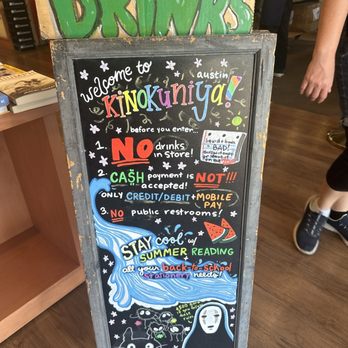 DRINKS
welcome to
austin
KINOKUNIYA!
before you enter...
1. NO drinks
in store!
2. CA$H payment is
NOT!!!
accepted!
ONLY CREDIT/DEBIT + MOBILE
PAY
3. NO public restrooms!
STAY cool w/
SUMMER READING
all your back-to-school
stationery needs!